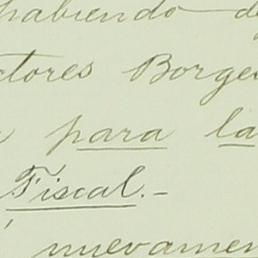 habiendo
ctores Borge
para la
Fiscal.-
nuevamen